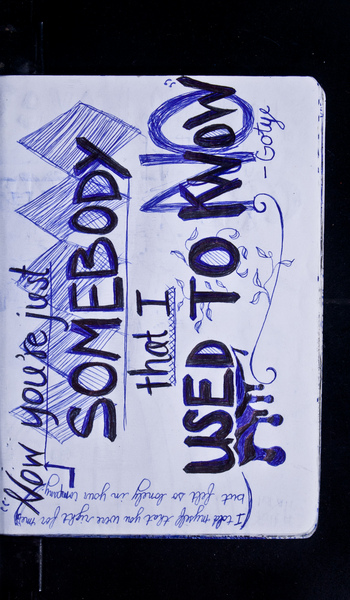 Now you're just
SOMEBODY
that I
USED TO KNOW
- Gotye
(I told myself that you were right for me
but felt so lonely in your company